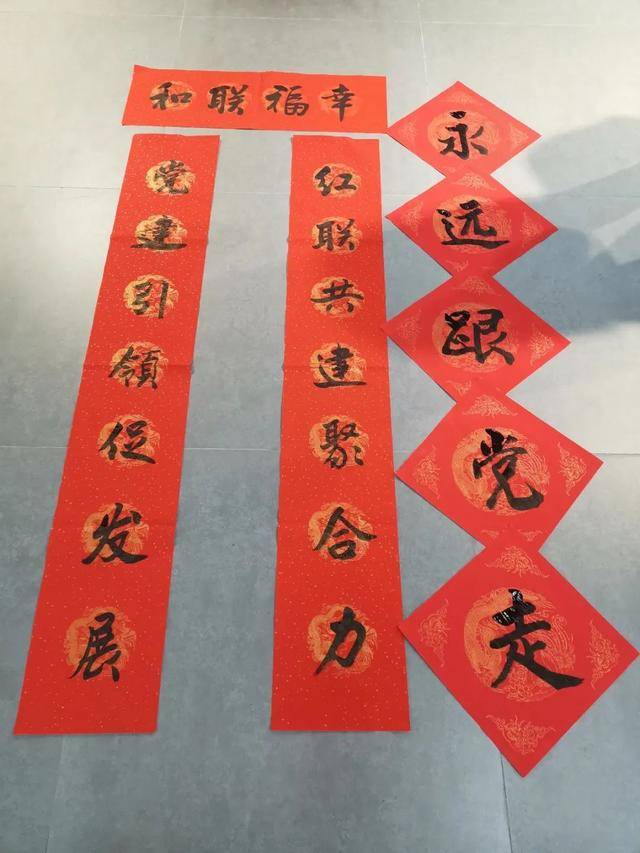 幸福联和
红联共建聚合力
党建引领促发展
永远跟党走